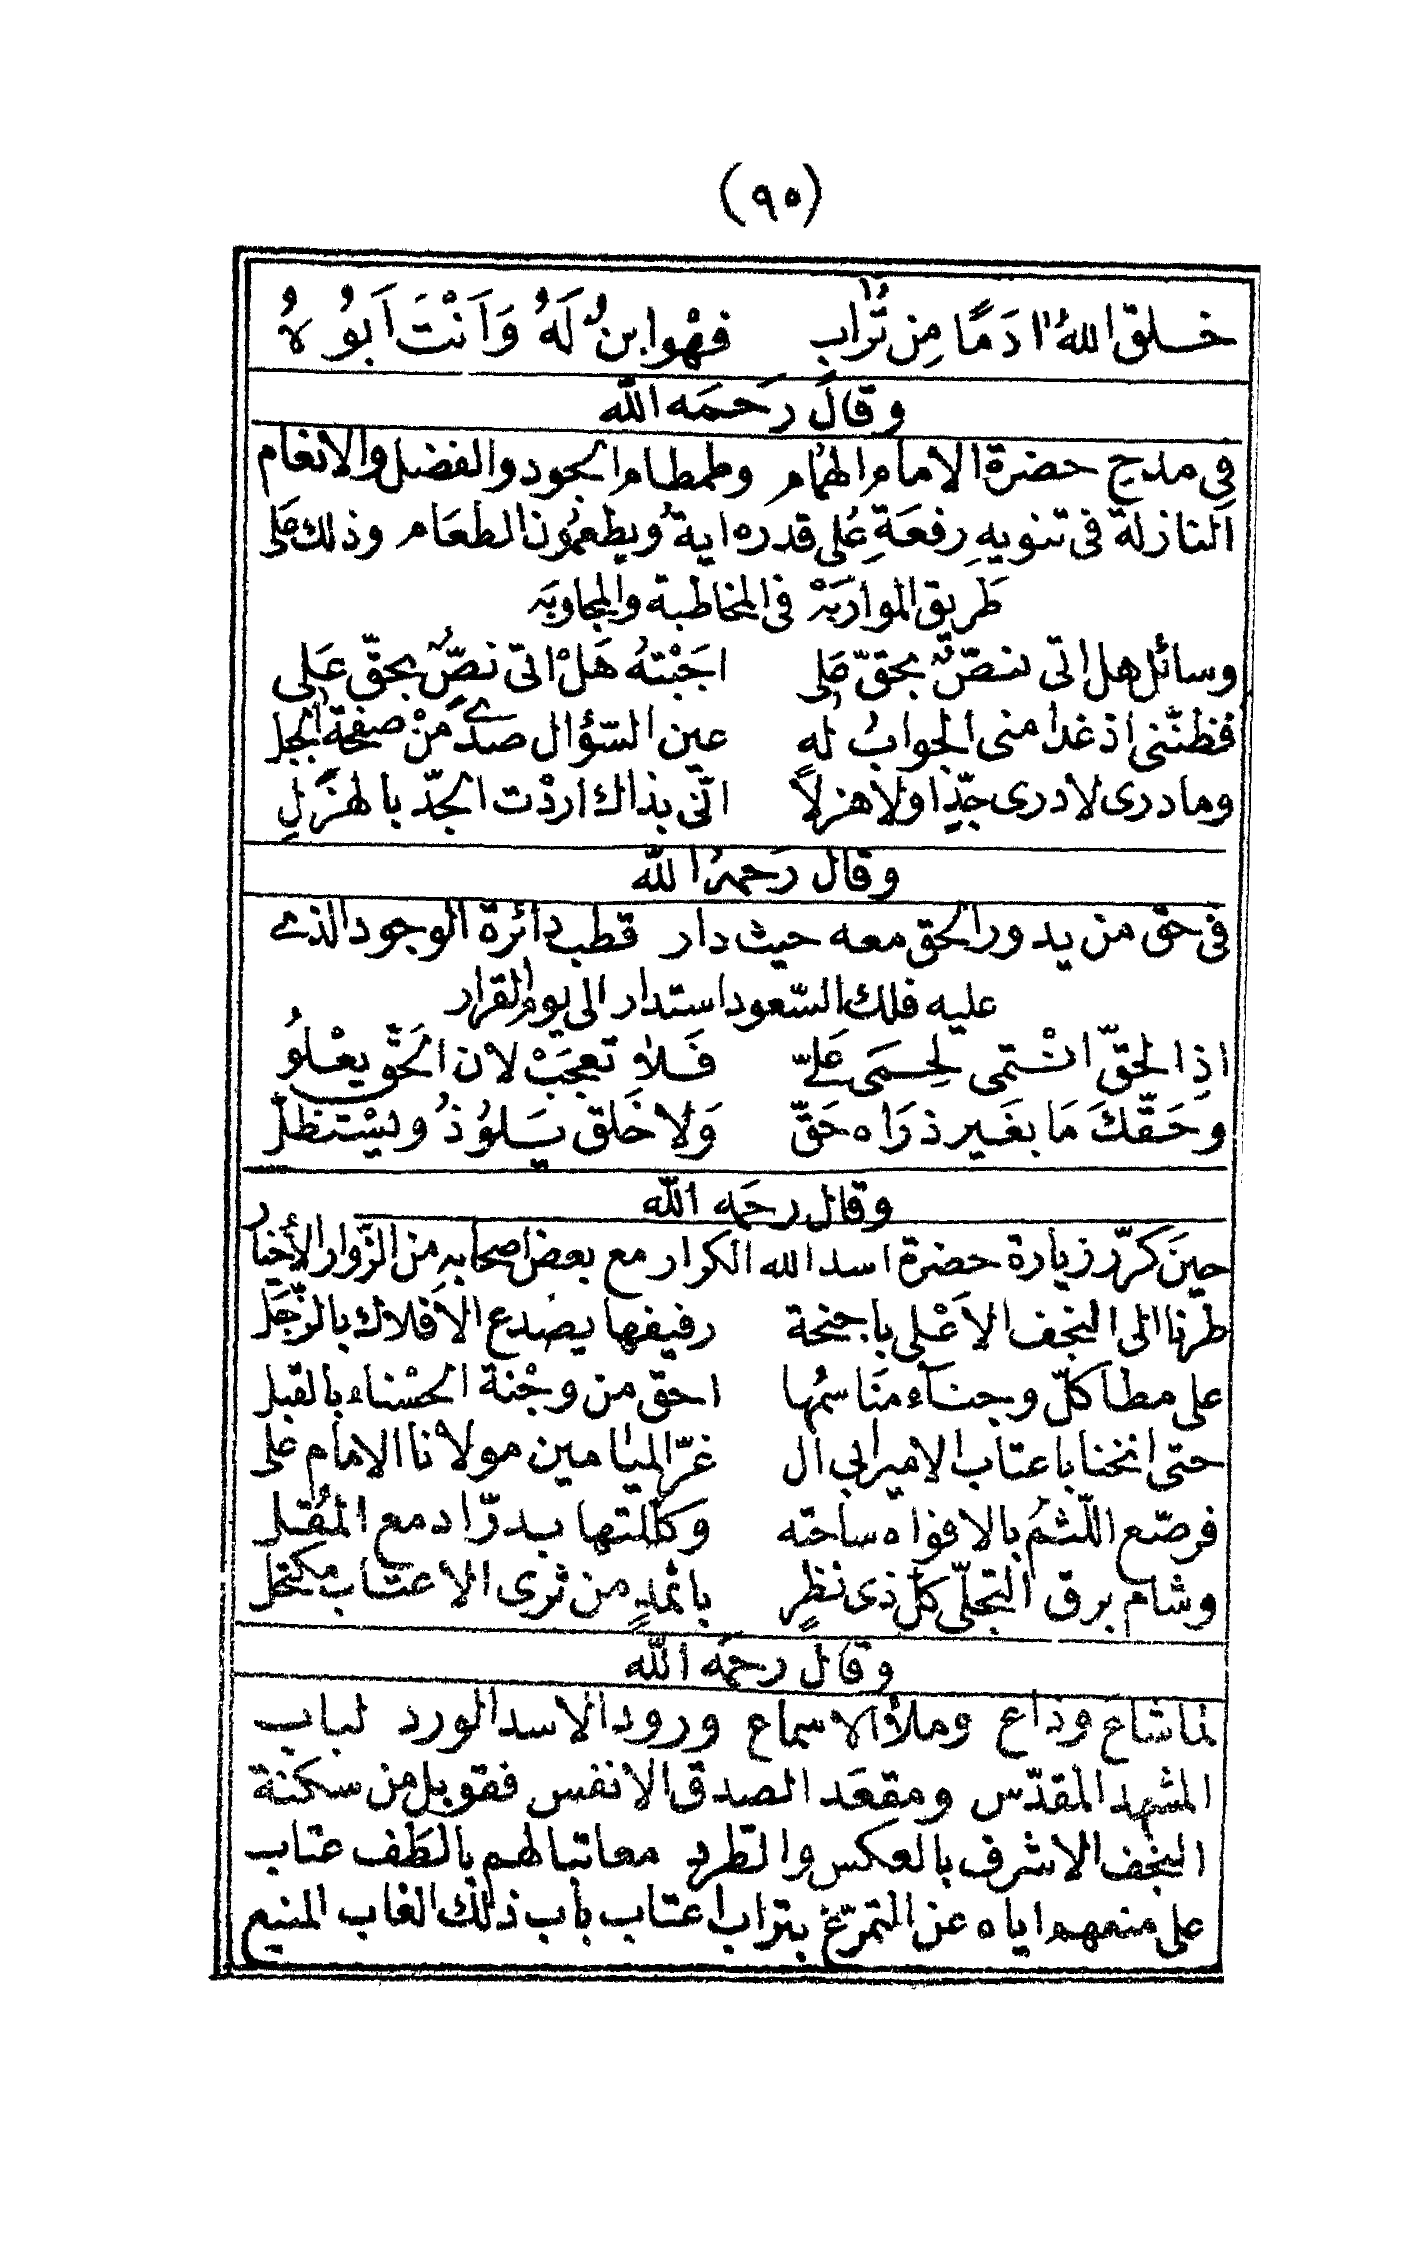 (٩٥)
خلق اللهُ اٰدَمًا مِن تُّرابٍ فهْوابنٌ لَهُ وَاَنْتَ اَبُوهُ
وقال رَحمَه الله
فِى مديح حضرة الامام الهُمام وطمطام الجود والفضل والانعام
النازلة فى تنويهِ رِفعَةِ عُلى قدره اية ويطعمُون الطعَام وذلك على
طَريق المواربَةْ فى المخاطبة والمجاوبَه
وسائل هل اتى نصّ بحقّ عَلى اجَبْتهُ هَلْ اتى نصٌّ بحقّ عَلى
فظنّنى اذ غدا منى الجوابُ له عين السّؤال صدًى مِنْ صفحة الجبل
وما درى لا درى جِدًّا ولا هزلاً انّنى بذاك اردْت الجدّ بالهزَلِ
وقال رَحمهُ الله
فى حق من يدور الحق معه حيث دار قطب دائرة الوجود الذى
عليه فلك السّعود استدار الى يوم القرار
اذِ الحقّ انْتمى لِحِمَى عَلىّ فَلا تعجَبْ لان الحَقّ يعْلوُ
وحَقّكَ مَا بغَير ذرَاه حَقّ وَلا خَلق يَسلوُذُ ويسْتظلّ
وقال رحمَه الله
حينَ كرّر زيارة حضرة اسد الله الكرار مع بعض اصحابهِ من الزّوار الأخيار
طرنا الى النجف الاَعْلى باجنحة رفيفها يصدع الافلاك بالزّجَل
على مطا كلّ وجناَء مَناسمُها احق من وجْنة الحسْناء بالقبل
حتى انخنا باعتاب الامير ابى ال غرّ الميامين مولانا الامام على
فرصّع اللّثمُ بالافواه ساحته وكلّلتها بدرّ ادمع المُقل
وشام برق التجلّى كلّ ذى نظرٍ باثمدٍ من ثرى الاعتاب مكتحل
وقال رحمَه الله
لما شاع وذاع وملأ الاسماع ورود الاسد الورد لباب
المشهد المقدّس ومقعَد الصدق الانفس فقوبل من سكنة
النجف الاشرف بالعكس والطرد معاتبا لهم بالطَف عتاب
على منعهم اياه عن التمرّغ بتراب اعتاب باب ذلك الغاب المنيع